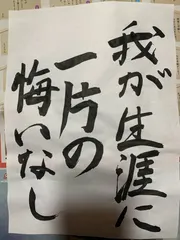 我が生涯に
一片の
悔いなし